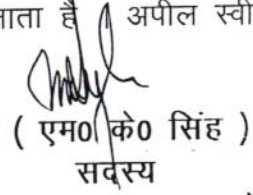 जाता है अपील स्वी
( एम0 के0 सिंह )
सदस्य